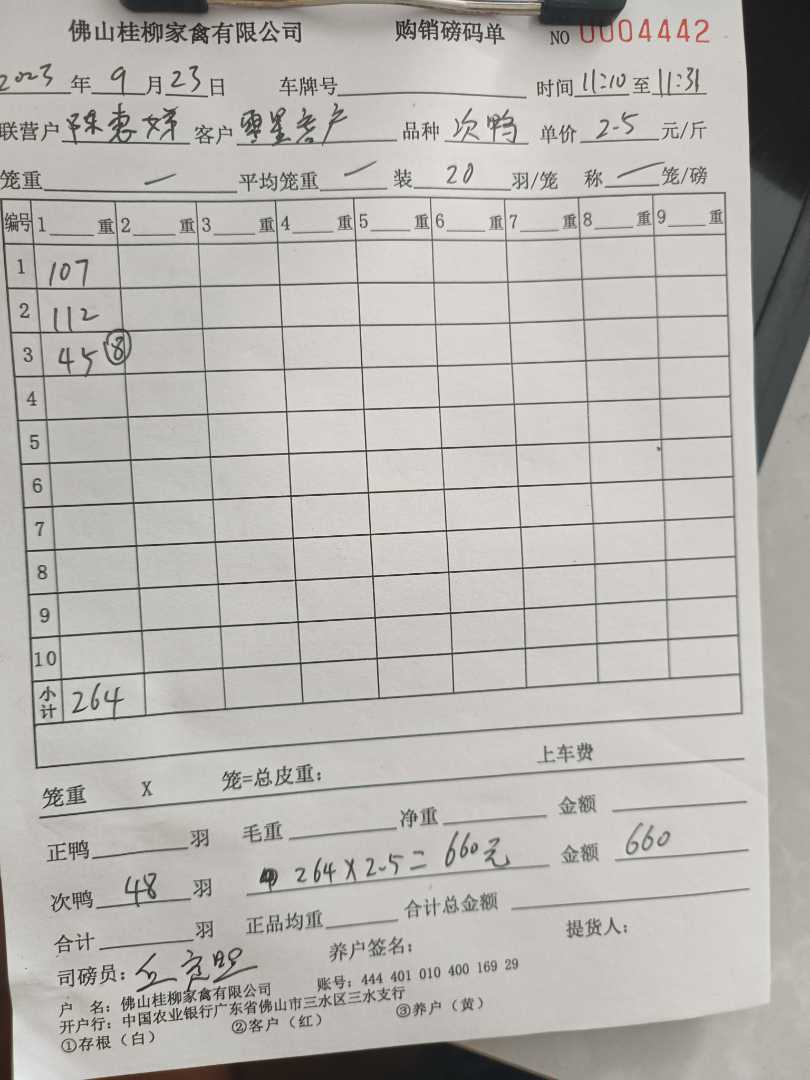 佛山桂柳家禽有限公司 购销磅码单 NO 0004442
2023年9月23日 车牌号 时间11:10至11:31
联营户 陈惠娣 客户 零星客户 品种 次鸭 单价 2.5 元/斤
笼重 — 平均笼重 — 装 20 羽/笼 称 — 笼/磅
编号 1 重 2 重 3 重 4 重 5 重 6 重 7 重 8 重 9 重
1 107
2 112
3 45 ⑧
4
5
6
7
8
9
10
小计 264
上车费
笼重 X 笼=总皮重:
正鸭 羽 毛重 净重 金额
次鸭 48 羽 264×2.5=660元 金额 660
合计 羽 正品均重 合计总金额
司磅员: 养户签名: 提货人:
户 名: 佛山桂柳家禽有限公司 账号: 444 401 010 400 169 29
开户行: 中国农业银行广东省佛山市三水区三水支行
①存根(白) ②客户(红) ③养户(黄)